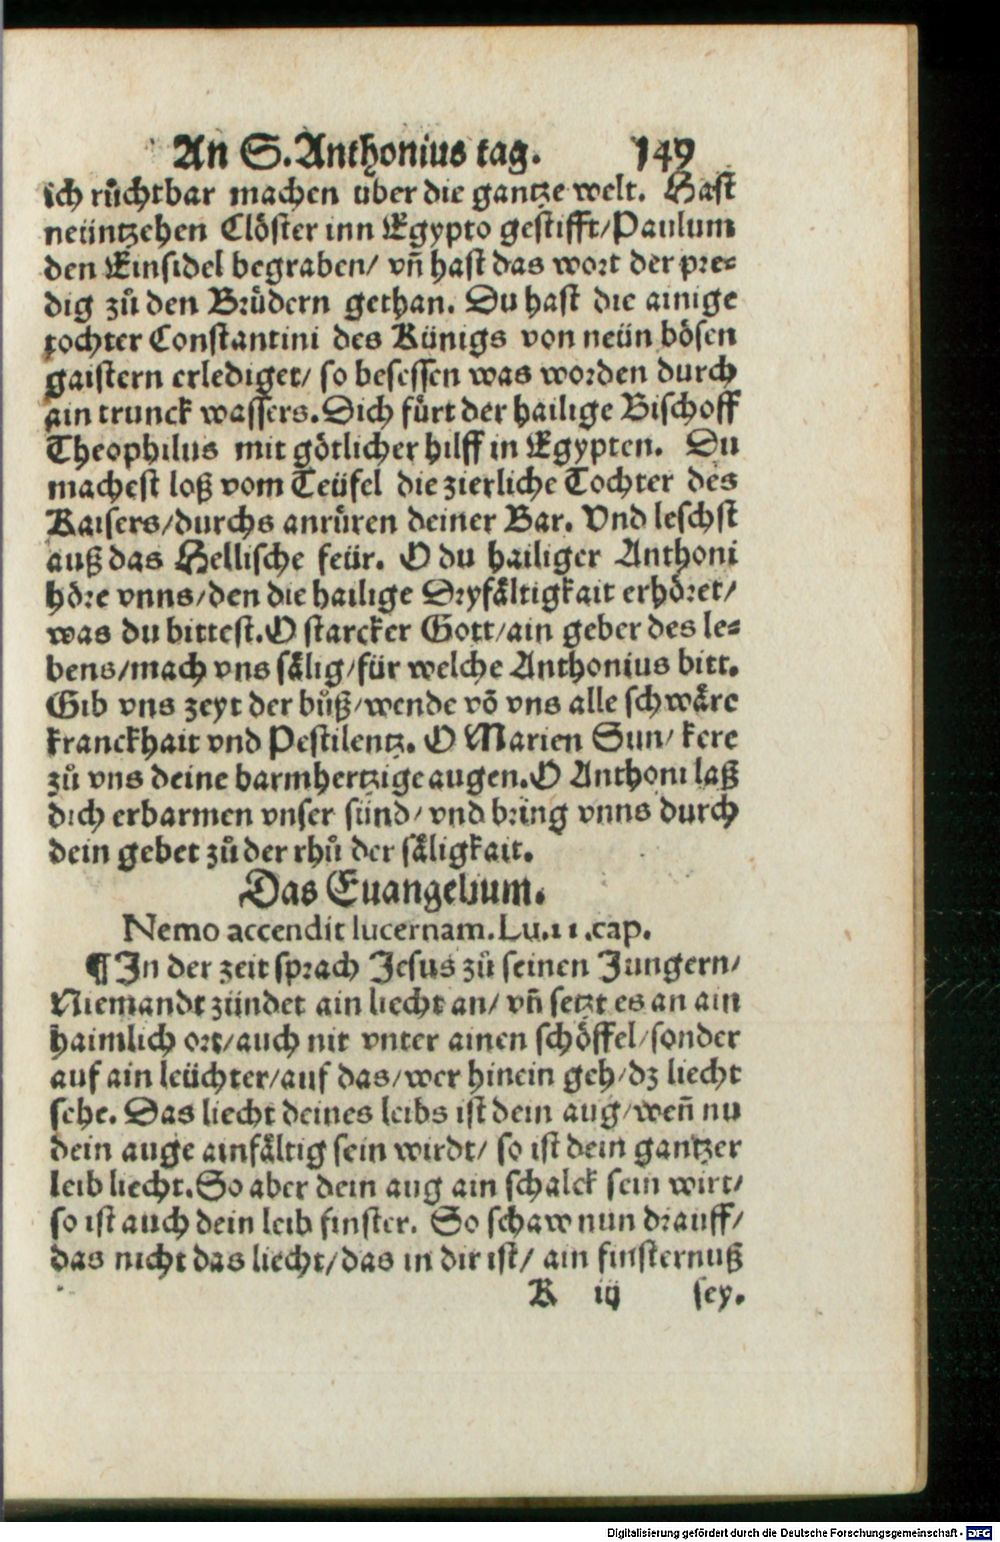 An S. Anthonius tag. 149
ich růchtbar machen über die gantze welt. Hast
neüntzehen Clöster inn Egypto gestifft/Paulum
den Einsidel begraben/ vñ hast das wort der pre⸗
dig zů den Brüdern gethan. Du hast die ainige
tochter Constantini des Künigs von neün bösen
gaistern erlediget/ so besessen was worden durch
ain trunck wassers. Dich fürt der hailige Bischoff
Theophilus mit götlicher hilff in Egypten. Du
machest loß vom Teüfel die zierliche Tochter des
Kaisers/durchs anrüren deiner Bar. Vnd leschst
auß das Hellische feür. O du hailiger Anthoni
höre vnns/den die hailige Dryfåltigkait erhöret/
was du bittest. O starcker Gott/ain geber des le⸗
bens/mach vns sålig/für welche Anthonius bitt.
Gib vns zeyt der bůß/wende võ vns alle schwåre
kranckhait vnd Pestilentz. O Marien Sun/ kere
zů vns deine barmhertzige augen. O Anthoni laß
dich erbarmen vnser sünd/ vnd bring vnns durch
dein gebet zů der rhů der såligkait.
Das Euangelium.
Nemo accendit lucernam. Lu. 11. cap.
¶ In der zeit sprach Jesus zů seinen Jungern/
Niemandt zündet ain liecht an/ vñ setzt es an ain
haimlich ort/auch nit vnter ainen schöffel/sonder
auf ain leüchter/auf das/wer hinein geh/dz liecht
sehe. Das liecht deines leibs ist dein aug/weñ nu
dein auge ainfåltig sein wirdt/ so ist dein gantzer
leib liecht. So aber dein aug ain schalck sein wirt/
so ist auch dein leib finster. So schaw nun drauff/
das nicht das liecht/das in dir ist/ ain finsternuß
K iij sey.
Digitalisierung gefördert durch die Deutsche Forschungsgemeinschaft - DFG